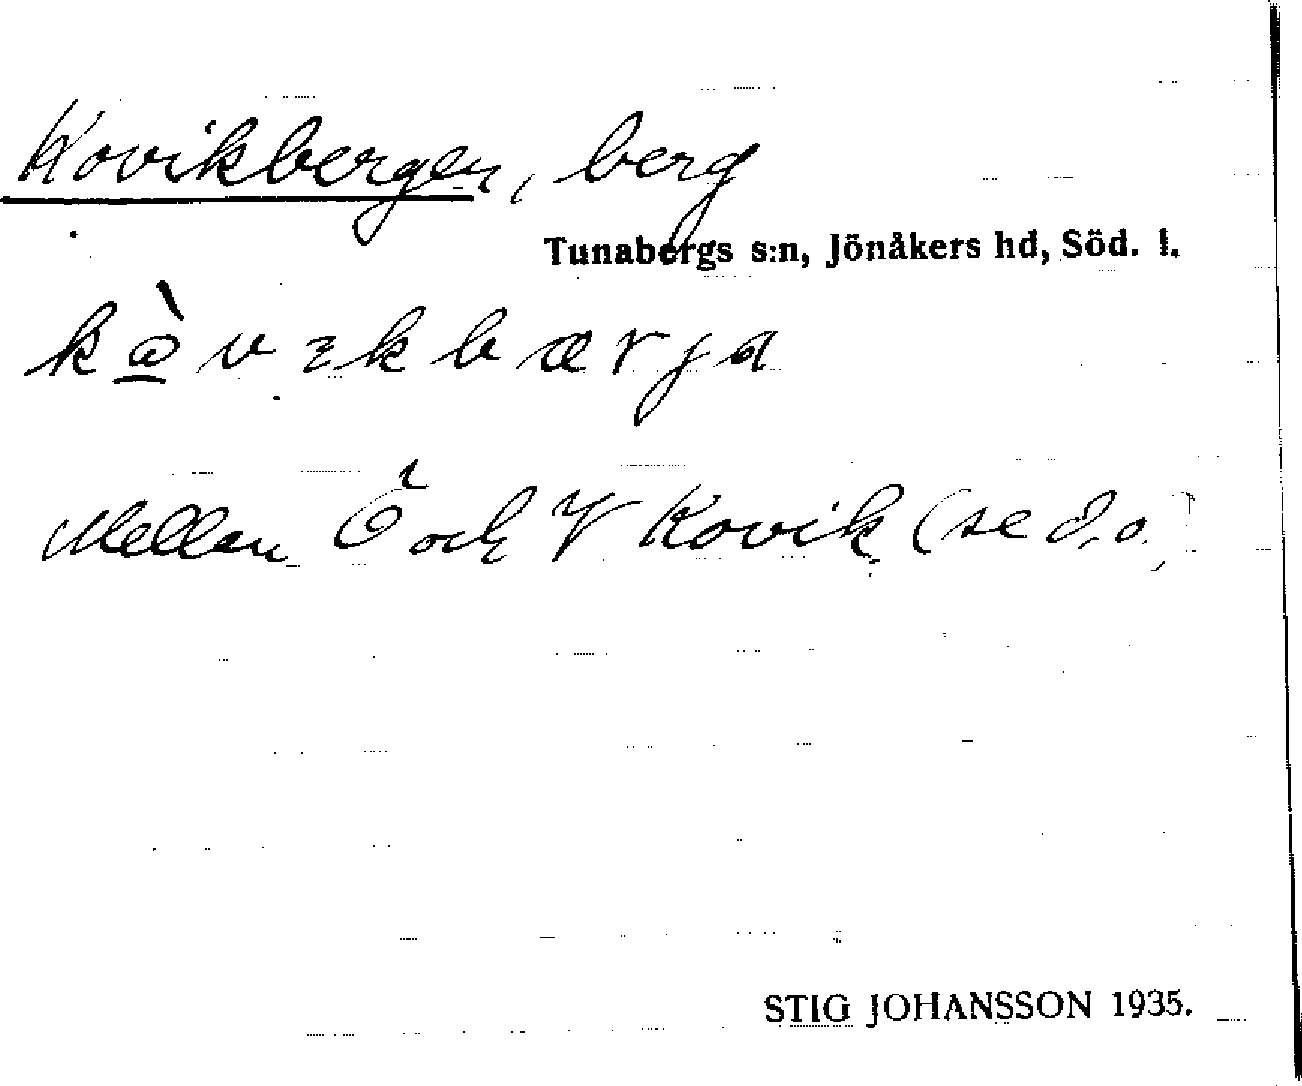 Kovikbergen, berg
Tunabergs s:n, Jönåkers hd, Söd. l.
Mellan Ö och V Kovik (se d.o.)
STIG JOHANSSON 1935.